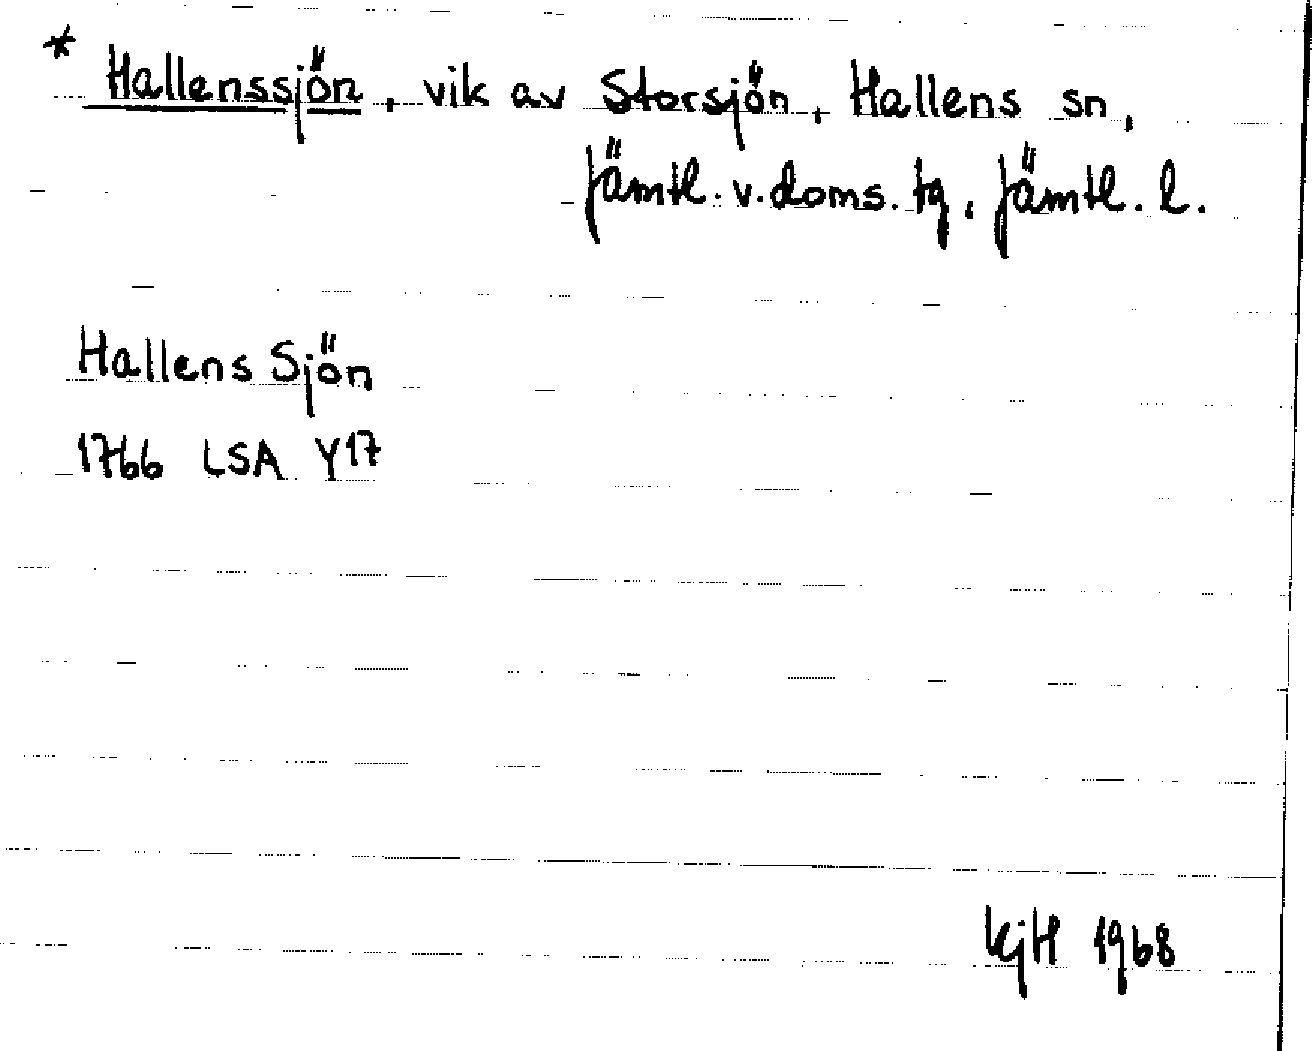 * Hallenssjön, vik av Storsjön, Hallens sn,
Jämtl. v. doms. tg, Jämtl. l.
Hallens Sjön
1766 LSA Y17
KjH 1968